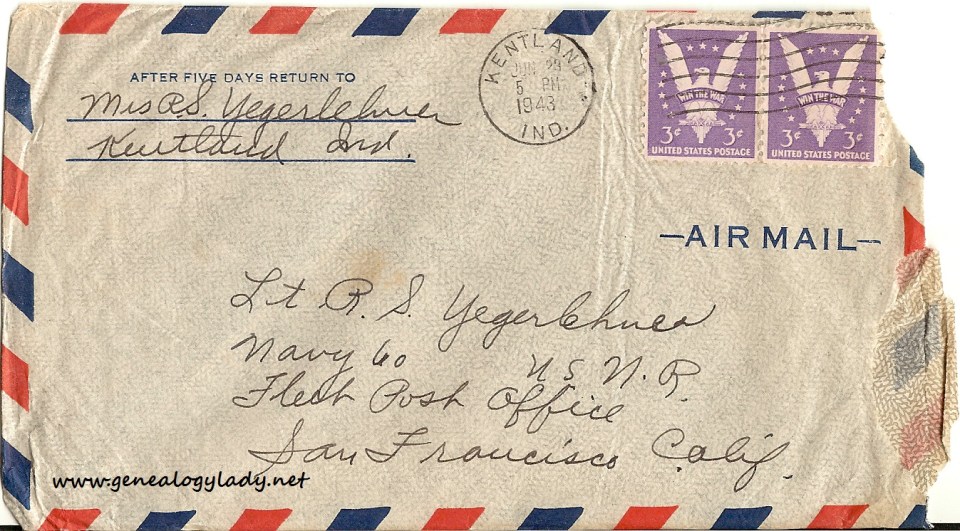 AFTER FIVE DAYS RETURN TO
Mrs R.S. Yegerlehner
Kentland Ind.
KENTLAND
JUN 29
5 PM
1943
IND.
WIN THE WAR
3¢ 3¢
UNITED STATES POSTAGE
WIN THE WAR
3¢ 3¢
UNITED STATES POSTAGE
—AIR MAIL—
Lt R. S. Yegerlehner
Navy 60 U S N. R.
Fleet Post Office
San Francisco Calif.
www.genealogylady.net